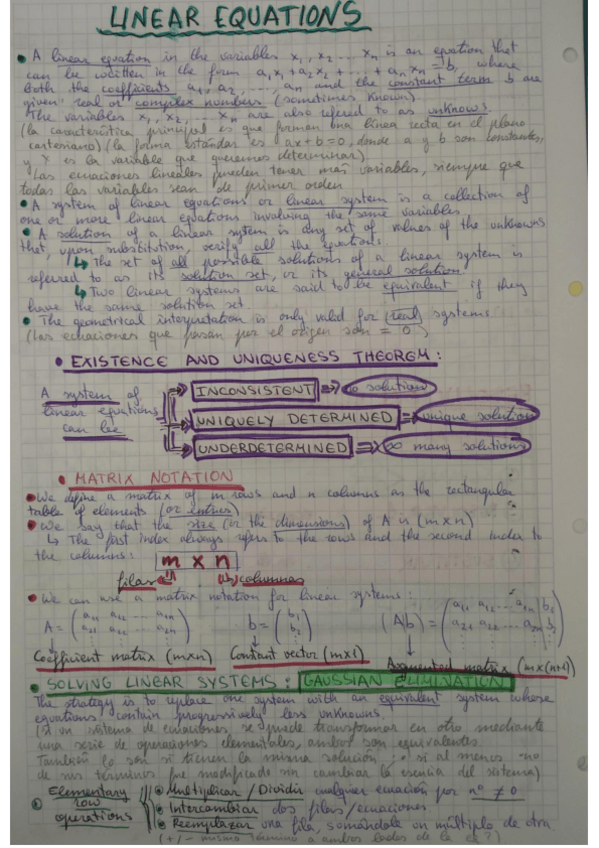 LINEAR EQUATIONS
• A linear equation in the variables x₁, x₂ ... xₙ is an equation that
can be written in the form a₁x₁ + a₂x₂ + ... + aₙxₙ = b, where
both the coefficients a₁, a₂, ..., aₙ and the constant term b are
given real or complex numbers (sometimes known).
The variables x₁, x₂, ... xₙ are also refered to as unknowns.
(la característica principal es que forman una línea recta en el plano
cartesiano) (la forma estándar es ax+b=0, donde a y b son constantes,
y x es la variable que queremos determinar)
Las ecuaciones lineales pueden tener más variables, siempre que
todas las variables sean de primer orden
• A system of linear equations or linear system is a collection of
one or more linear equations involving the same variables.
• A solution of a linear system is any set of values of the unknowns
that, upon substitution, verify all the equations.
↳ The set of all possible solutions of a linear system is
referred to as its solution set, or its general solution.
↳ Two linear systems are said to be equivalent if they
have the same solution set.
• The geometrical interpretation is only valid for real systems.
(Las ecuaciones que pasan por el origen son = 0)
• EXISTENCE AND UNIQUENESS THEOREM:
A system of
linear equations
can be
INCONSISTENT ⇒ no solution
UNIQUELY DETERMINED ⇒ unique solution
UNDERDETERMINED ⇒ ∞ many solutions
• MATRIX NOTATION
• We define a matrix of m rows and n columns as the rectangular
table of elements (or entries)
• We say that the size (or the dimensions) of A is (m×n)
↳ The first index always refers to the rows and the second index to
the columns: m × n
filas columnas
• We can use a matrix notation for linear systems:
A = (a₁₁ a₁₂ ... a₁ₙ b = (b₁ (A|b) = (a₁₁ a₁₂ ... a₁ₙ | b₁
a₂₁ a₂₂ ... a₂ₙ) b₂) a₂₁ a₂₂ ... a₂ₙ | b₂)
Coefficient matrix (m×n) Constant vector (m×1) Augmented matrix (m×(n+1))
• SOLVING LINEAR SYSTEMS: GAUSSIAN ELIMINATION
The strategy is to replace one system with an equivalent system whose
equations contain progressively less unknowns.
(si un sistema de ecuaciones se puede transformar en otro mediante
una serie de operaciones elementales, ambos son equivalentes.
También lo son si tienen la misma solución, o si al menos uno
de sus términos fue modificado sin cambiar la esencia del sistema)
Elementary
row
operations
• Multiplicar / Dividir cualquier ecuación por nº ≠ 0
• Intercambiar dos filas/ecuaciones.
• Reemplazar una fila, sumándole un múltiplo de otra.
(+/- mismo término a ambos lados de la